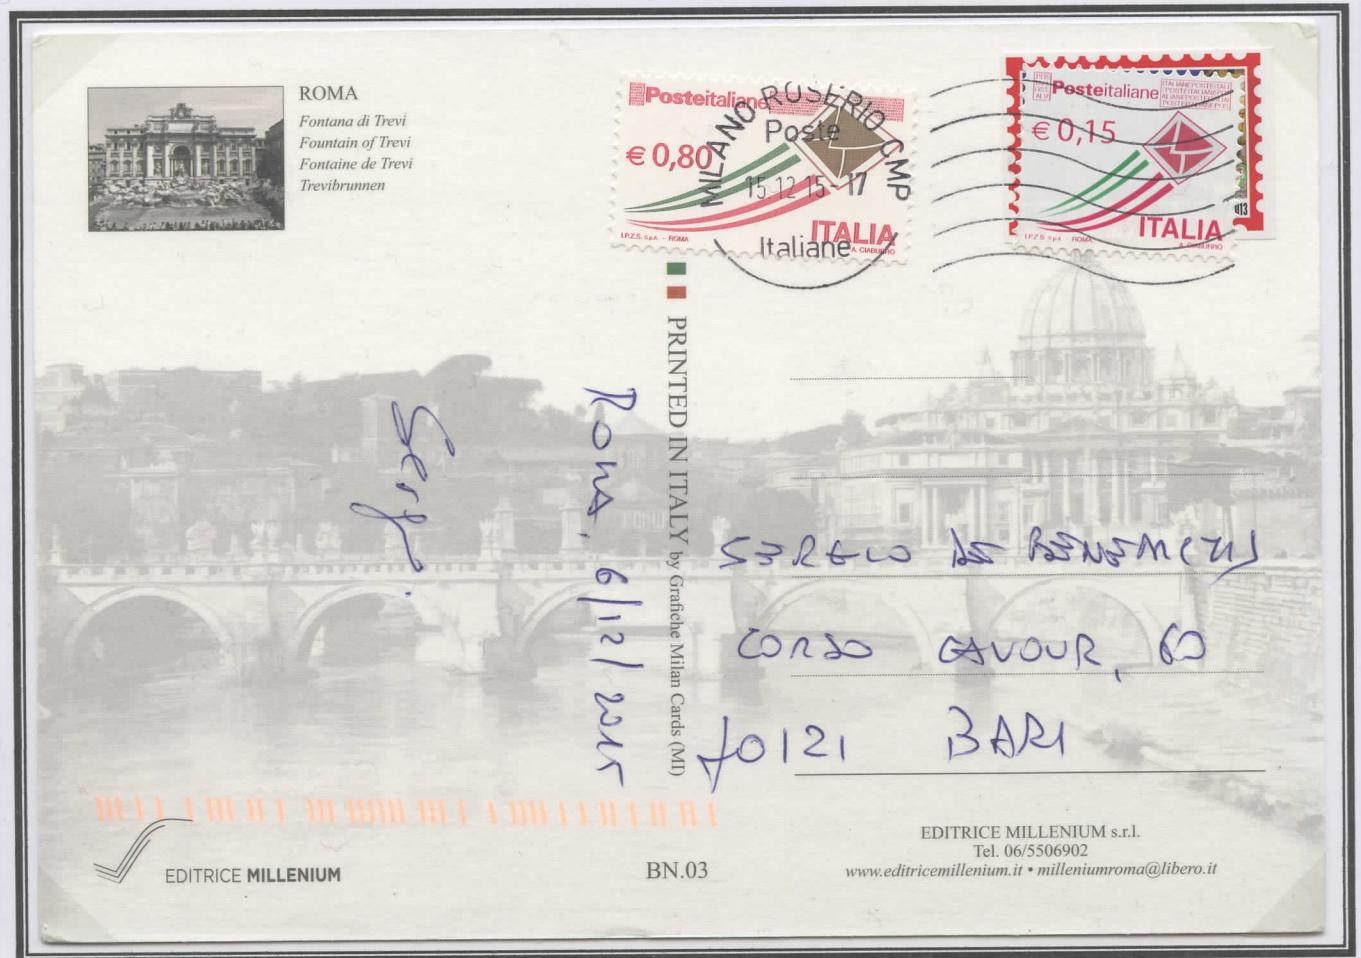 ROMA
Fontana di Trevi
Fountain of Trevi
Fontaine de Trevi
Trevibrunnen
Posteitaliane
€ 0,80
ITALIA
I.P.Z.S. S.p.A. - ROMA
A. CIABURRO
MILANO ROSERIO CMP
Poste
15.12.15-17
Italiane
Posteitaliane
€ 0,15
ITALIA
I.P.Z.S. S.p.A. ROMA
A. CIABURRO
PRINTED IN ITALY by Grafiche Milan Cards (MI)
ROMA, 6/12/2015
SERGIO DE BENEDICTIS
CORSO CAVOUR, 60
70121 BARI
EDITRICE MILLENIUM
BN.03
EDITRICE MILLENIUM s.r.l.
Tel. 06/5506902
www.editricemillenium.it • milleniumroma@libero.it